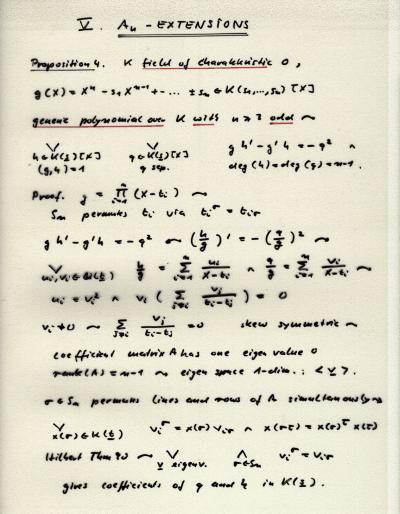 V. An - EXTENSIONS
Proposition 4. K field of characteristic 0,
g(X) = X^n - s_1 X^{n-1} + - ... ± s_n ∈ K(s_1,...,s_n)[X]
generic polynomial over K with n ≥ 3 odd ~
∨ ∨ g h' - g'h = -q² ∧
h ∈ K(s)[X] q ∈ K(s)[X] deg(h) = deg(q) = n-1.
(g,h) = 1 q sep.
Proof. g = ∏_{i=1}^n (X - t_i) ~
S_n permutes t_i via t_i^σ = t_{iσ}
g h' - g'h = -q² ~ (h/g)' = -(q/g)² ~
u_i, v_i ∈ K(t) h/g = Σ_{i=1}^n u_i/(X - t_i) ∧ q/g = Σ_{i=1}^n v_i/(X - t_i) ~
u_i = v_i² ∧ v_i (Σ_{j≠i} v_j/(t_i - t_j)) = 0
v_i ≠ 0 ~ Σ_{j≠i} v_j/(t_i - t_j) = 0 skew symmetric ~
coefficient matrix A has one eigen value 0
rank(A) = n-1 ~ eigen space 1-dim.: <v>.
σ ∈ S_n permutes lines and rows of A simultaneously ~
∨ x(σ) ∈ K(t) v_i^σ = x(σ) v_{iσ} ∧ x(στ) = x(σ)^τ x(τ)
Hilbert Thm 90 ~ ∨ v eigenv. ∧ σ∈S_n v_i^σ = v_{iσ}
gives coefficients of q and h in K(s).